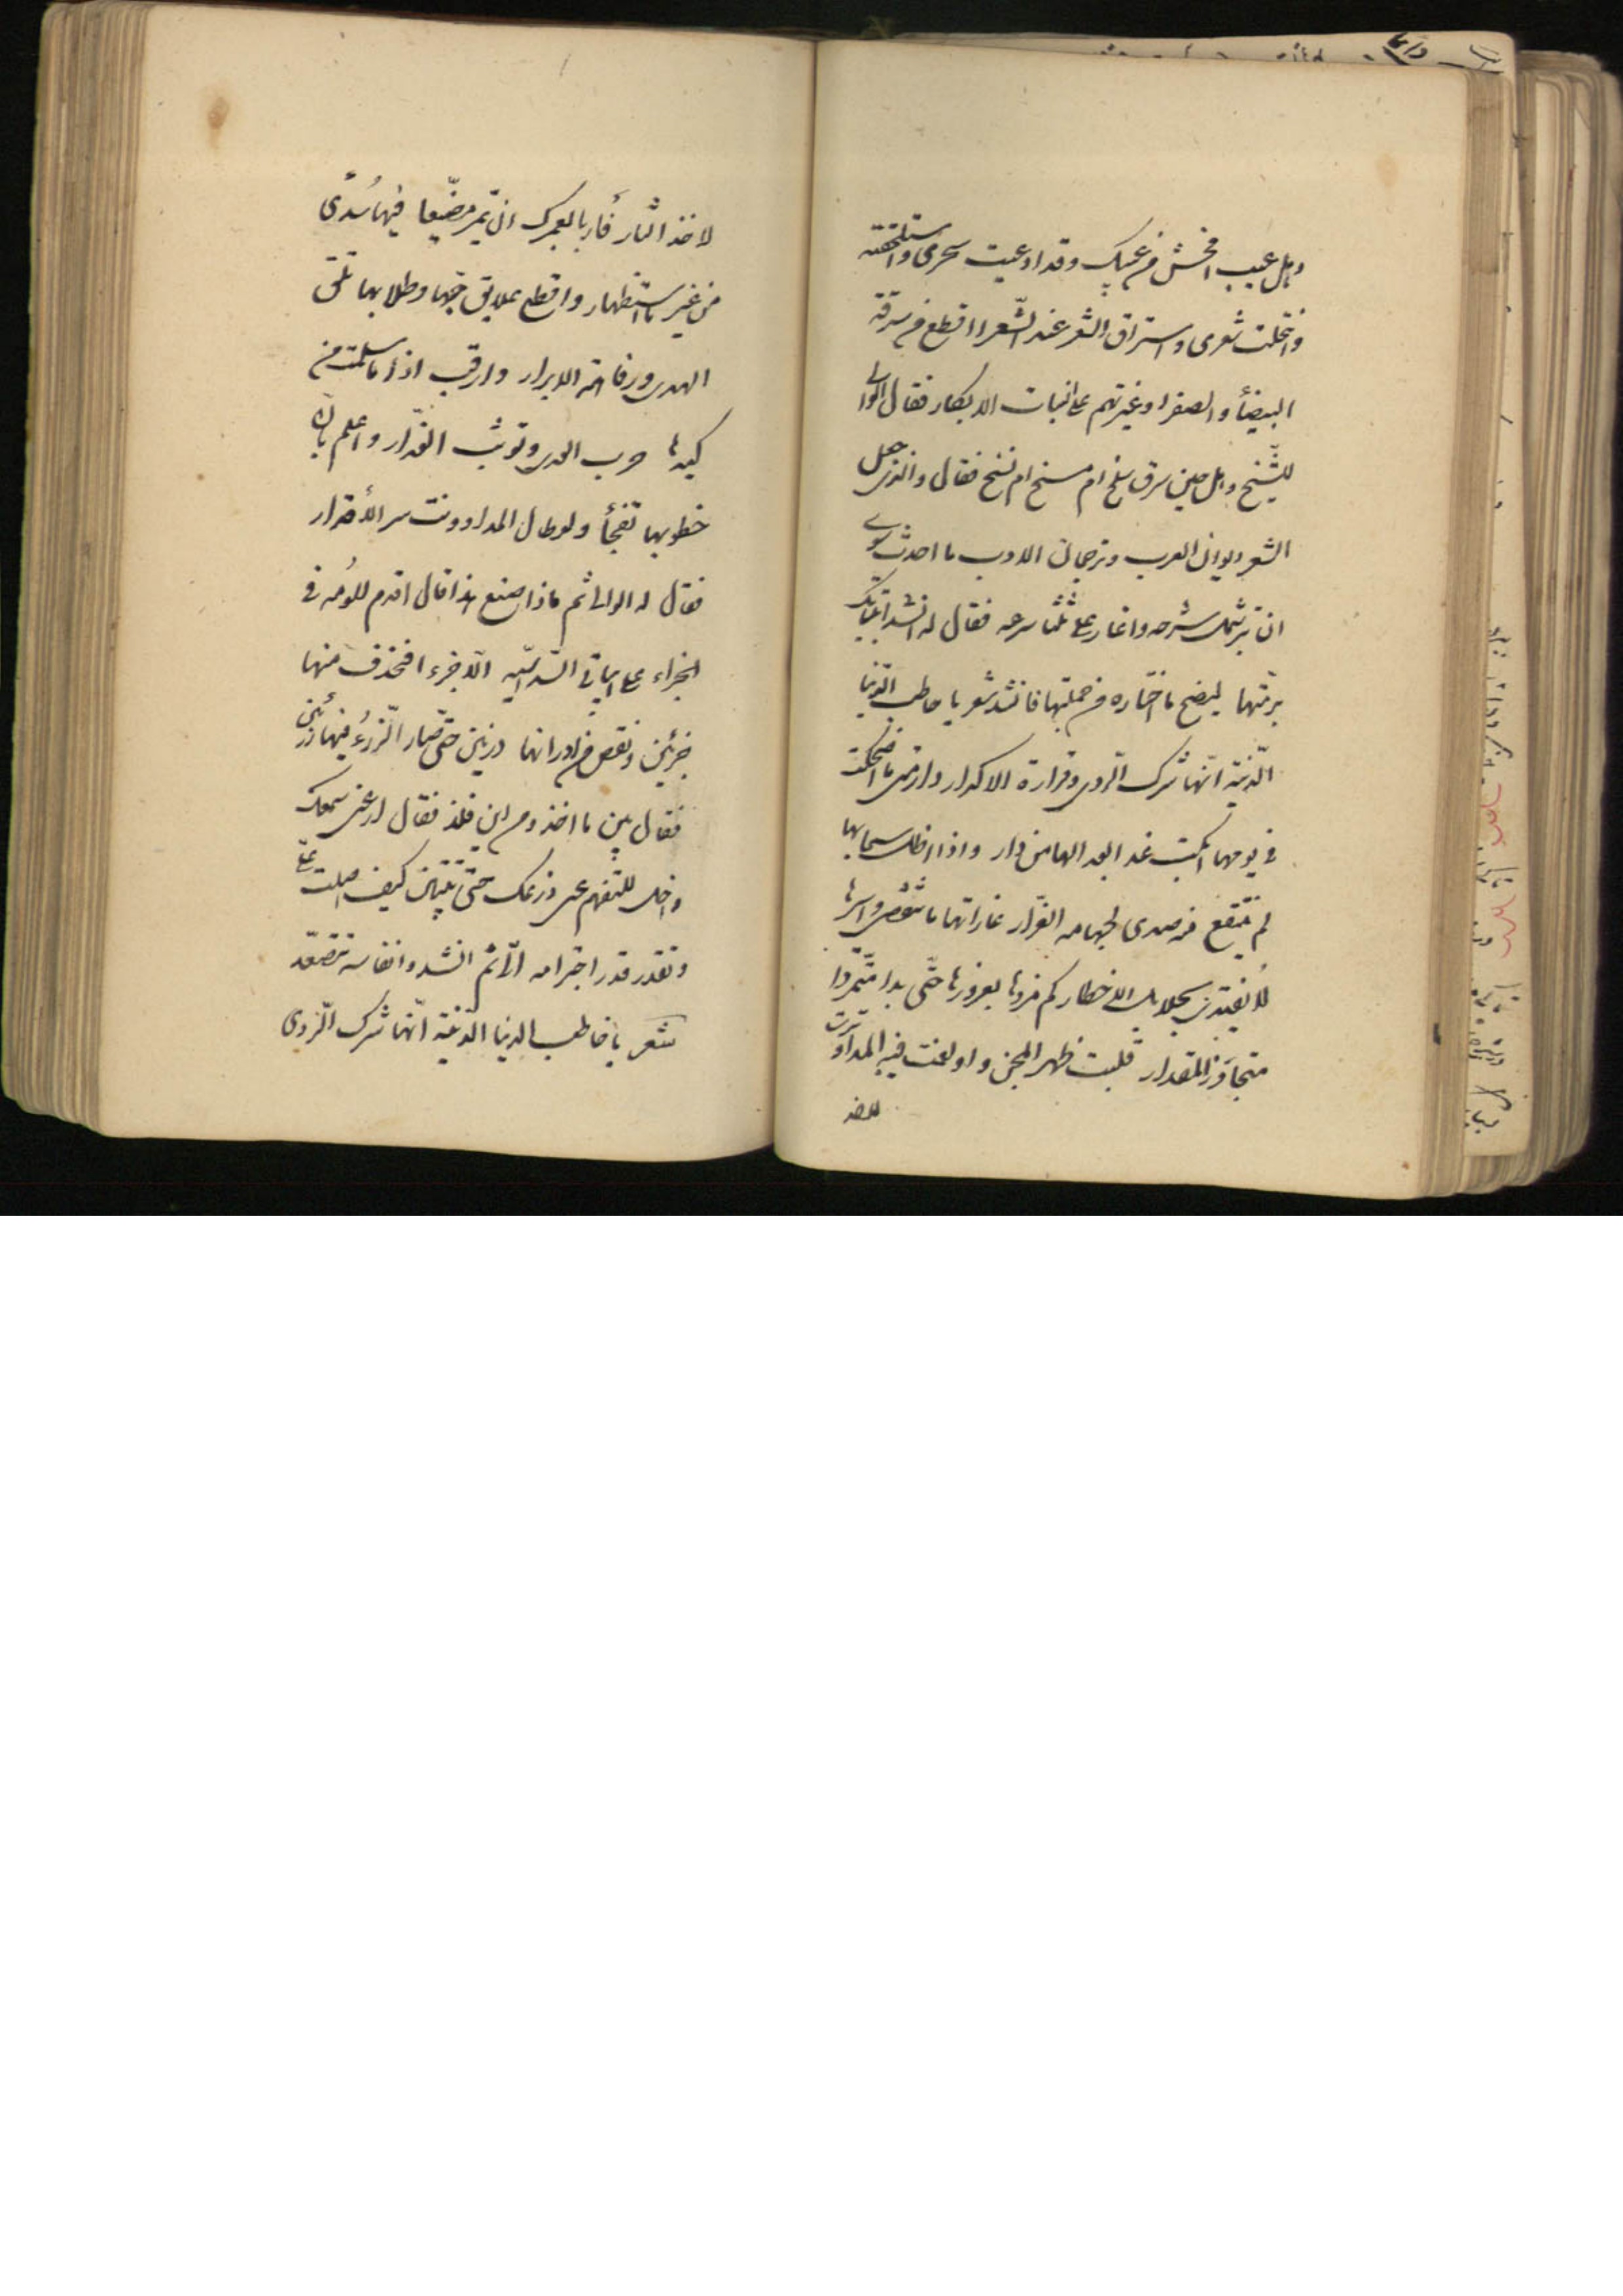 وهل عيب افحش من عيبك وقد ادعيت سحرى واستلحقته
وانتحلت شعرى واستراق الشعر عند الشّعرا اقطع من سرقة
البيضأ والصفرا وغيرتهم على البنات الابكار فقال الوالى
للشّيخ وهل حين سرق سلخ ام مسخ ام نسخ فقال والذى جعل
الشعر ديوان العرب وترجمان الادب ما احدث سوى
ان بتر شمل شرحه واغار على ثلثا سرحه فقال له انشد ابياتك
برمّتها ليضح ما اختاره من جملتها فانشد شعر يا خاطب الدّنيا
الدّنية انّها شرك الرّدى وقرارة الاكدار دار متى ما اضحكت
فى يومها ابكت غدا بعدا لها من دار واذا اظل سحابها
لم ينتقع منه صدى لجهامه الغرّار غاراتها ما تنقضى واسيرها
لا يفتدى بجلايل الاخطار كم مزدها بغرورها حتّى بدا متمّردا
متجاوز المقدار قلبت له ظهر المجن واولغت فيه المدا ونزت
لاخذ
لاخذ الثار فأربا بعمرك ان يمر مضيّعا فيها سُدًى
من غير ما استظهار واقطع علايق حبّها وطلابها تلق
الهدى ورفاهة الابرار وارقب اذا ما سلمت من
كيدها حرب العدى وتوثب الغدّار واعلم بان
خطوبها تفجأ ولو طال المدا وونت سر الأقدار
فقال له الوالى ثم ماذا صنع هذا قال اقدم للومه فى
الجزاء على ابياتى السّداسيّه الاجزء افحذف منها
جزئين ونقص من اوزانها وزنين حتى صار الرّزءُ فيها رزئين
فقال بين ما اخذ ومن اين فلذ فقال ارعنى سمعك
واخل للتفهم عنى ذرعك حتى تتبيّن كيف اصلت علىّ
وتقدر قدر اجترامه الىّ ثم انشد وانفاسه تتصعّد
شعر يا خاطب الدنيا الدّنيّة انّها شرك الرّدى